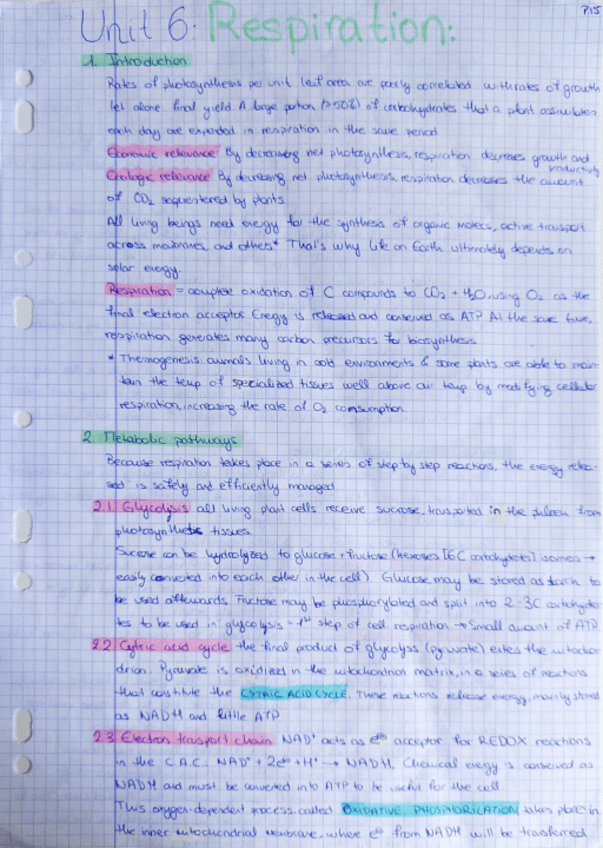 P.15
Unit 6: Respiration:
1. Introduction
Rates of photosynthesis per unit leaf area are poorly correlated with rates of growth
let alone final yield. A large portion (>50%) of carbohydrates that a plant assimilates
each day are expended in respiration in the same period
Economic relevance By decreasing net photosynthesis, respiration decreases growth and productivity
Ecologic relevance By decreasing net photosynthesis, respiration decreases the amount
of CO2 sequestered by plants
All living beings need energy for the synthesis of organic molecs, active transport
across membranes, and others* That's why life on Earth ultimately depends on
solar energy.
Respiration = complete oxidation of C compounds to CO2 + H2O, using O2 as the
final electron acceptor Energy is released and conserved as ATP At the same time,
respiration generates many carbon precursors for biosynthesis
* Thermogenesis animals living in cold environments & some plants are able to main-
tain the temp of specialized tissues well above air temp by modifying cellular
respiration, increasing the rate of O2 consumption
2. Metabolic pathways
Because respiration takes place in a series of step by step reactions, the energy relea-
sed is safely and efficiently managed
2.1 Glycolysis all living plant cells receive sucrose, transported in the phloem from
photosynthetic tissues
Sucrose can be hydrolyzed to glucose + fructose (hexoses [6C carbohydrates] isomers →
easily converted into each other in the cell) Glucose may be stored as starch to
be used afterwards Fructose may be phosphorylated and split into 2 3C carbohydra-
tes to be used in glycolysis = 1st step of cell respiration → Small amount of ATP
2.2 Cytric acid cycle the final product of glycolysis (pyruvate) enters the mitochon-
drion. Pyruvate is oxidized in the mitochondrion matrix, in a series of reactions
that constitute the CYTRIC ACID CYCLE. These reactions release energy, mainly stored
as NADH and little ATP
2.3 Electron transport chain NAD+ acts as e⊖ acceptor for REDOX reactions
in the C.A.C: NAD+ + 2e⊖ + H+ → NADH. Chemical energy is conserved as
NADH and must be converted into ATP to be useful for the cell
This oxygen-dependent process, called OXIDATIVE PHOSPHORILATION takes place in
the inner mitochondrial membrane, where e⊖ from NADH will be transferred